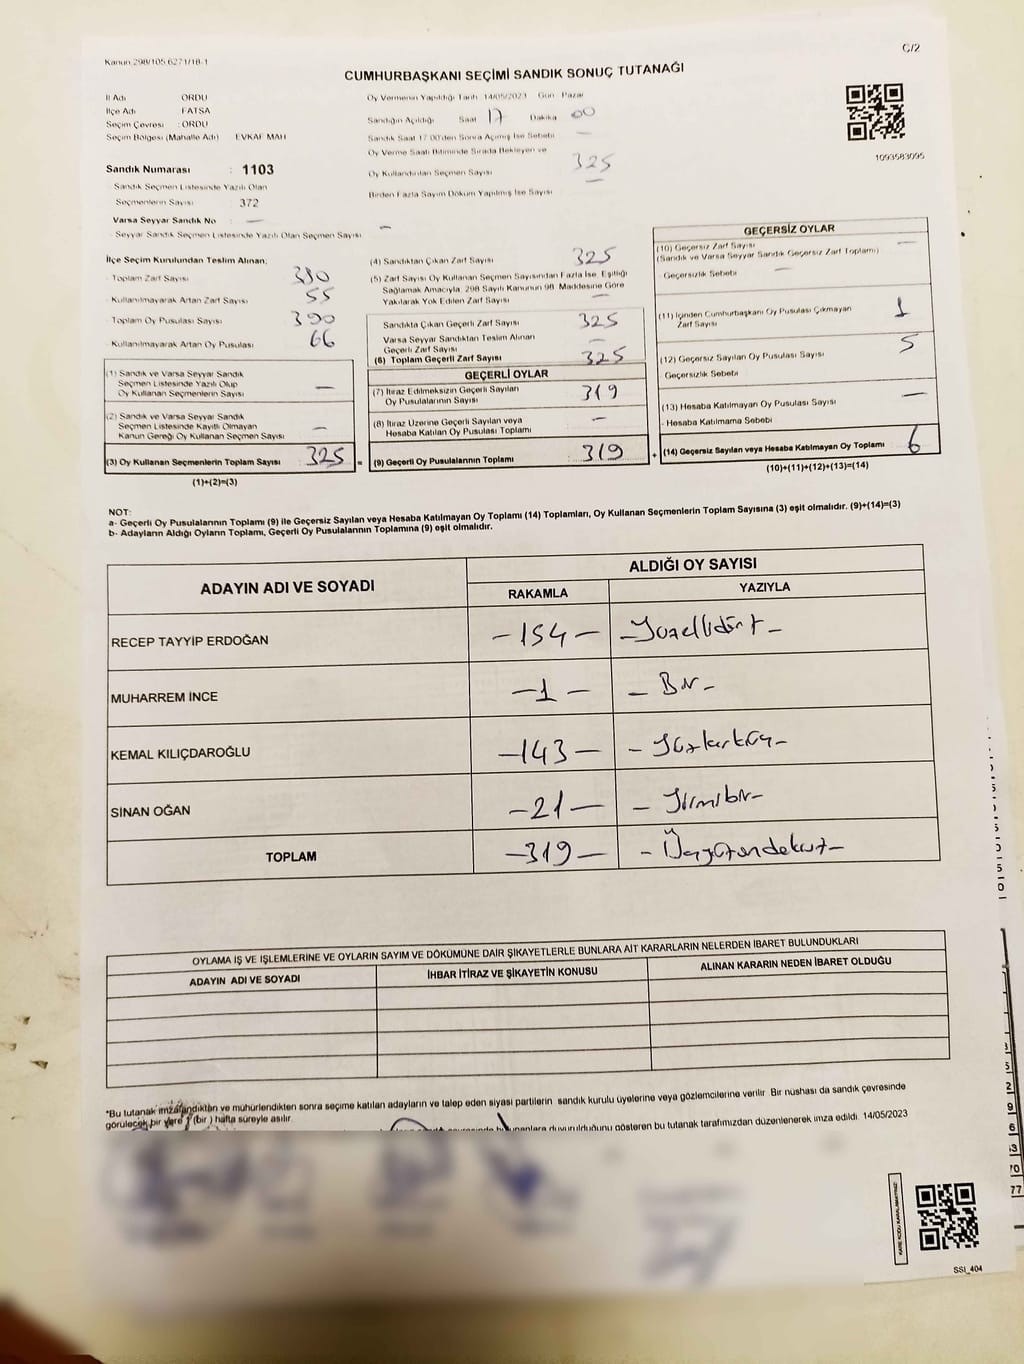 C/2
Kanun 298/105 6271/18-1
CUMHURBAŞKANI SEÇİMİ SANDIK SONUÇ TUTANAĞI
İl Adı ORDU
İlçe Adı FATSA
Seçim Çevresi : ORDU
Seçim Bölgesi (Mahalle Adı) EVKAF MAH
Sandık Numarası : 1103
Sandık Seçmen Listesinde Yazılı Olan
Seçmenlerin Sayısı 372
Varsa Seyyar Sandık No : —
- Seyyar Sandık Seçmen Listesinde Yazılı Olan Seçmen Sayısı —
Oy Vermenin Yapıldığı Tarih 14/05/2023 Gün Pazar
Sandığın Açıldığı Saat 17 Dakika 00
Sandık Saat 17:00'den Sonra Açılmış İse Sebebi —
Oy Verme Saati Bitiminde Sırada Bekleyen ve
Oy Kullandırılan Seçmen Sayısı 325
Birden Fazla Sayım Döküm Yapılmış İse Sayısı —
1093583095
İlçe Seçim Kurulundan Teslim Alınan;
- Toplam Zarf Sayısı 380
- Kullanılmayarak Artan Zarf Sayısı 55
- Toplam Oy Pusulası Sayısı 390
- Kullanılmayarak Artan Oy Pusulası 66
(1) Sandık ve Varsa Seyyar Sandık
Seçmen Listesinde Yazılı Olup
Oy Kullanan Seçmenlerin Sayısı —
(2) Sandık ve Varsa Seyyar Sandık
Seçmen Listesinde Kayıtlı Olmayan
Kanun Gereği Oy Kullanan Seçmen Sayısı —
(3) Oy Kullanan Seçmenlerin Toplam Sayısı 325
(1)+(2)=(3)
(4) Sandıktan Çıkan Zarf Sayısı 325
(5) Zarf Sayısı Oy Kullanan Seçmen Sayısından Fazla İse, Eşitliği
Sağlamak Amacıyla, 298 Sayılı Kanunun 98. Maddesine Göre
Yakılarak Yok Edilen Zarf Sayısı —
Sandıkta Çıkan Geçerli Zarf Sayısı 325
Varsa Seyyar Sandıktan Teslim Alınan
Geçerli Zarf Sayısı —
(6) Toplam Geçerli Zarf Sayısı 325
GEÇERLİ OYLAR
(7) İtiraz Edilmeksizin Geçerli Sayılan
Oy Pusulalarının Sayısı 319
(8) İtiraz Üzerine Geçerli Sayılan veya
Hesaba Katılan Oy Pusulası Toplamı —
= (9) Geçerli Oy Pusulalarının Toplamı 319
GEÇERSİZ OYLAR
(10) Geçersiz Zarf Sayısı —
(Sandık ve Varsa Seyyar Sandık Geçersiz Zarf Toplamı)
- Geçersizlik Sebebi —
(11) İçinden Cumhurbaşkanı Oy Pusulası Çıkmayan
Zarf Sayısı 1
(12) Geçersiz Sayılan Oy Pusulası Sayısı 5
Geçersizlik Sebebi
(13) Hesaba Katılmayan Oy Pusulası Sayısı —
- Hesaba Katılmama Sebebi
+ (14) Geçersiz Sayılan veya Hesaba Katılmayan Oy Toplamı 6
(10)+(11)+(12)+(13)=(14)
NOT:
a- Geçerli Oy Pusulalarının Toplamı (9) ile Geçersiz Sayılan veya Hesaba Katılmayan Oy Toplamı (14) Toplamları, Oy Kullanan Seçmenlerin Toplam Sayısına (3) eşit olmalıdır. (9)+(14)=(3)
b- Adayların Aldığı Oyların Toplamı, Geçerli Oy Pusulalarının Toplamına (9) eşit olmalıdır.
ADAYIN ADI VE SOYADI
ALDIĞI OY SAYISI
RAKAMLA YAZIYLA
RECEP TAYYİP ERDOĞAN –154– –Yüzellidört–
MUHARREM İNCE –1– –Bir–
KEMAL KILIÇDAROĞLU –143– –Yüzkırküç–
SİNAN OĞAN –21– –Yirmibir–
TOPLAM –319– –Üçyüzondokuz–
OYLAMA İŞ VE İŞLEMLERİNE VE OYLARIN SAYIM VE DÖKÜMÜNE DAİR ŞİKAYETLERLE BUNLARA AİT KARARLARIN NELERDEN İBARET BULUNDUKLARI
ADAYIN ADI VE SOYADI
İHBAR İTİRAZ VE ŞİKAYETİN KONUSU
ALINAN KARARIN NEDEN İBARET OLDUĞU
*Bu tutanak imzalandıktan ve mühürlendikten sonra seçime katılan adayların ve talep eden siyasi partilerin sandık kurulu üyelerine veya gözlemcilerine verilir. Bir nüshası da sandık çevresinde
görülecek bir yere 1 (bir) hafta süreyle asılır.
bulunanlara duyurulduğunu gösteren bu tutanak tarafımızdan düzenlenerek imza edildi. 14/05/2023
SSI_404